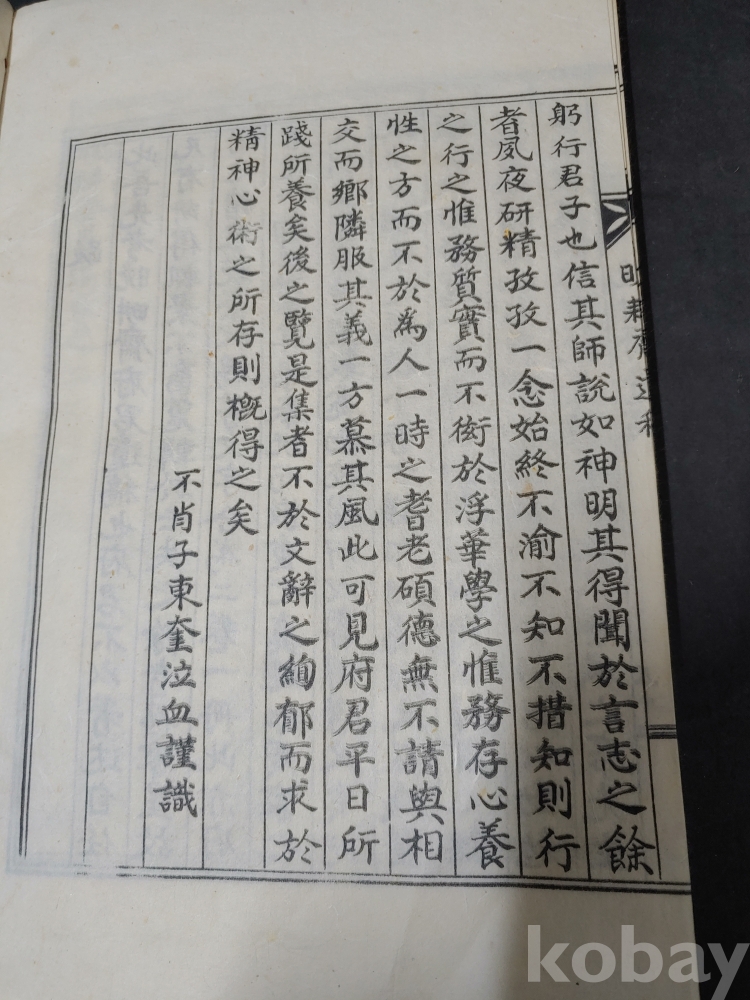 躬行君子也信其師說如神明其得聞於言志之餘
者夙夜硏精孜孜一念始終不渝不知不措知則行
之行之惟務質實而不衒於浮華學之惟務存心養
性之方而不於爲人一時之耆老碩德無不請與相
交而鄉隣服其義一方慕其風此可見府君平日所
踐所養矣後之覽是集者不於文辭之絢郁而求於
精神心術之所存則槪得之矣
不肖子東奎泣血謹識
kobay